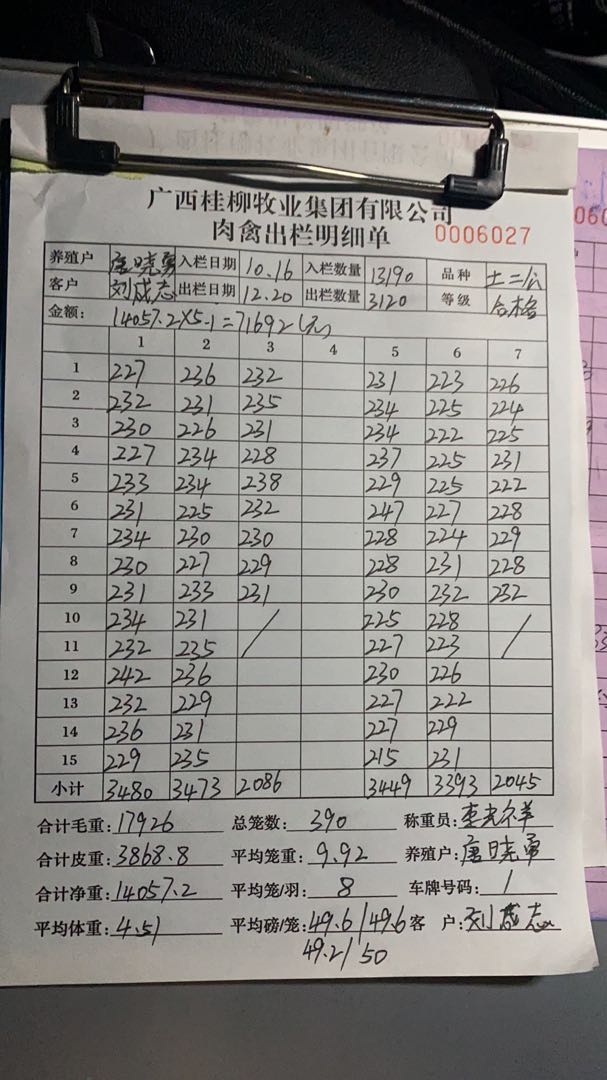 广西桂柳牧业集团有限公司
肉禽出栏明细单 0006027
养殖户 唐晓勇 入栏日期 10.16 入栏数量 13190 品种 土二公
客户 刘成志 出栏日期 12.20 出栏数量 3120 等级 合格
金额: 14057.2×5.1=71692(元)
1 2 3 4 5 6 7
1 227 236 232 231 223 226
2 232 231 235 234 225 224
3 230 226 231 234 222 225
4 227 234 228 237 225 231
5 233 234 238 229 225 222
6 231 225 232 247 227 228
7 234 230 230 228 224 229
8 230 227 229 228 231 228
9 231 233 231 230 232 232
10 234 231 / 225 228 /
11 232 235 227 223
12 242 236 230 226
13 232 229 227 222
14 236 231 227 229
15 229 235 215 231
小计 3480 3473 2086 3449 3393 2045
合计毛重: 17926 总笼数: 390 称重员:
合计皮重: 3868.8 平均笼重: 9.92 养殖户: 唐晓勇
合计净重: 14057.2 平均笼/羽: 8 车牌号码: 1
平均体重: 4.51 平均磅/笼: 49.6/49.6 客户: 刘成志
49.2/50